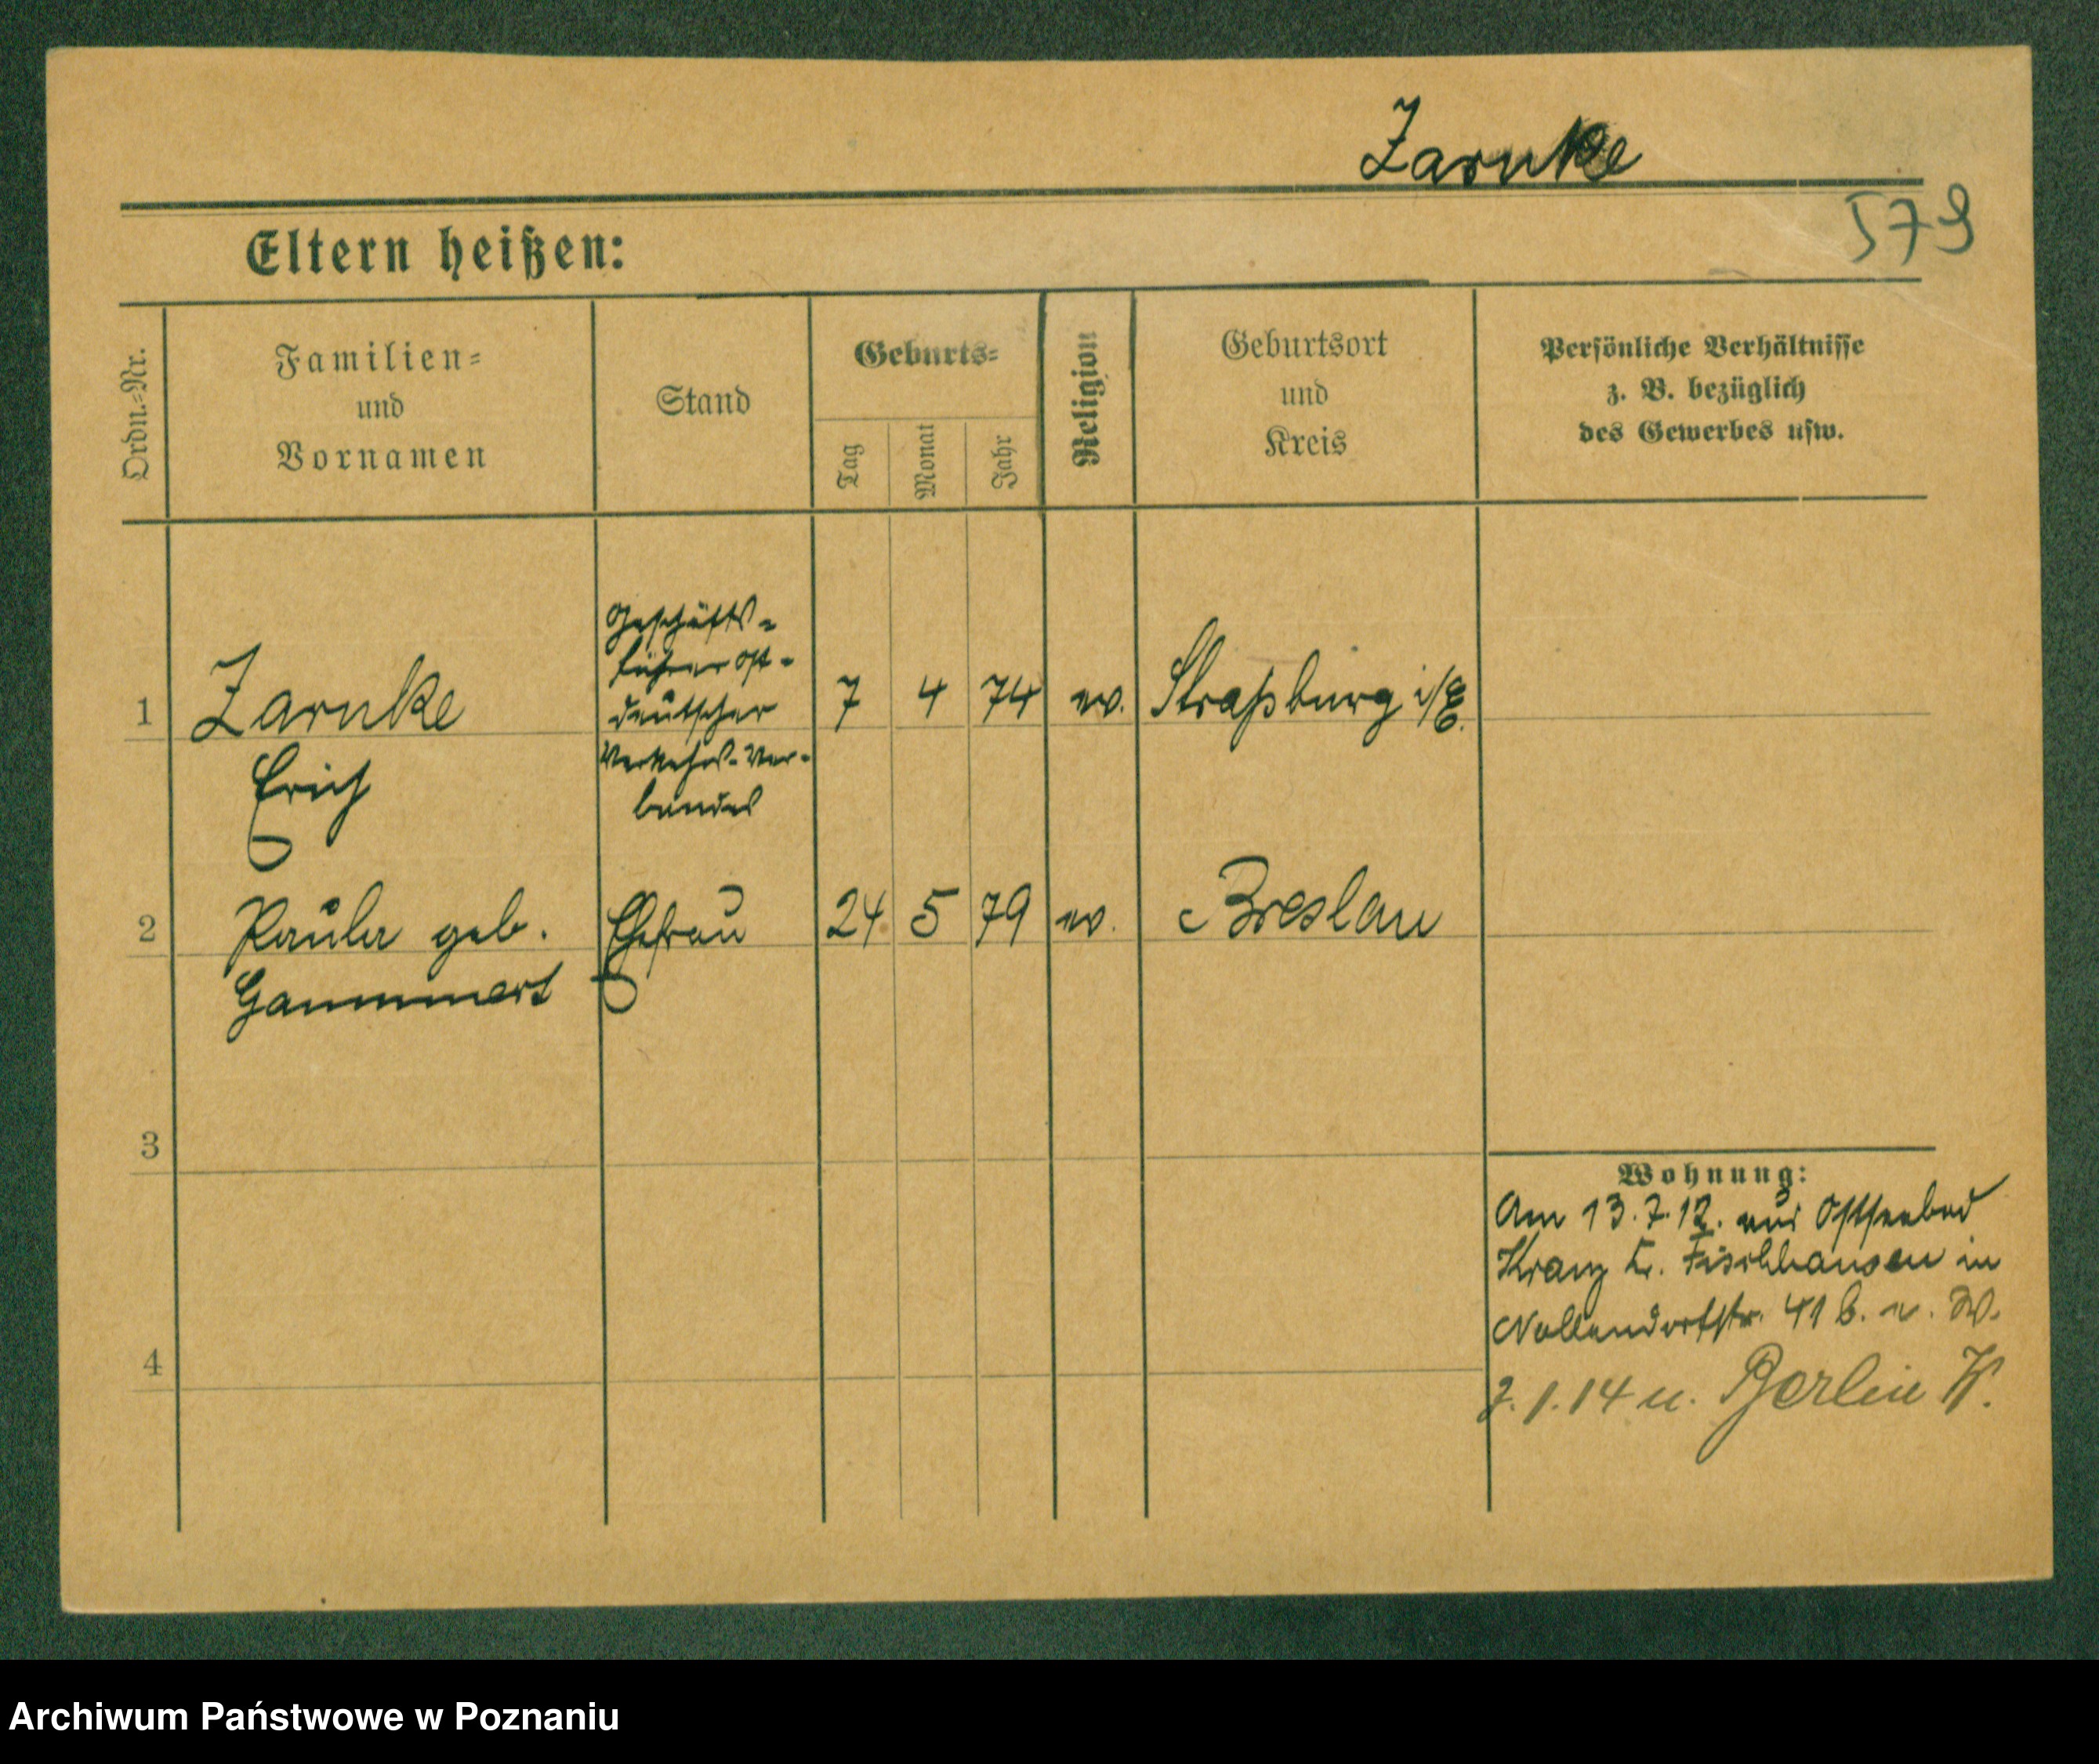 Zarnke
579
Eltern heißen:
Ordn.-Nr.
Familien-
und
Vornamen
Stand
Geburts-
Tag
Monat
Jahr
Religion
Geburtsort
und
Kreis
Persönliche Verhältnisse
z. B. bezüglich
des Gewerbes usw.
1
Zarnke
Erich
Geschäfts-
führer ost-
deutscher
Verkehrs-Ver-
bandes
7 4 74 ev. Straßburg i/E.
2
Paula geb.
Gammert
Ehefrau
24 5 79 ev. Breslau
3
4
Wohnung:
Am 13.7.12. aus Ostseebad
Kranz Kr. Fischhausen in
Nollendorfstr. 41 b. e. W.
7.1.14 u. Berlin W.
Archiwum Państwowe w Poznaniu